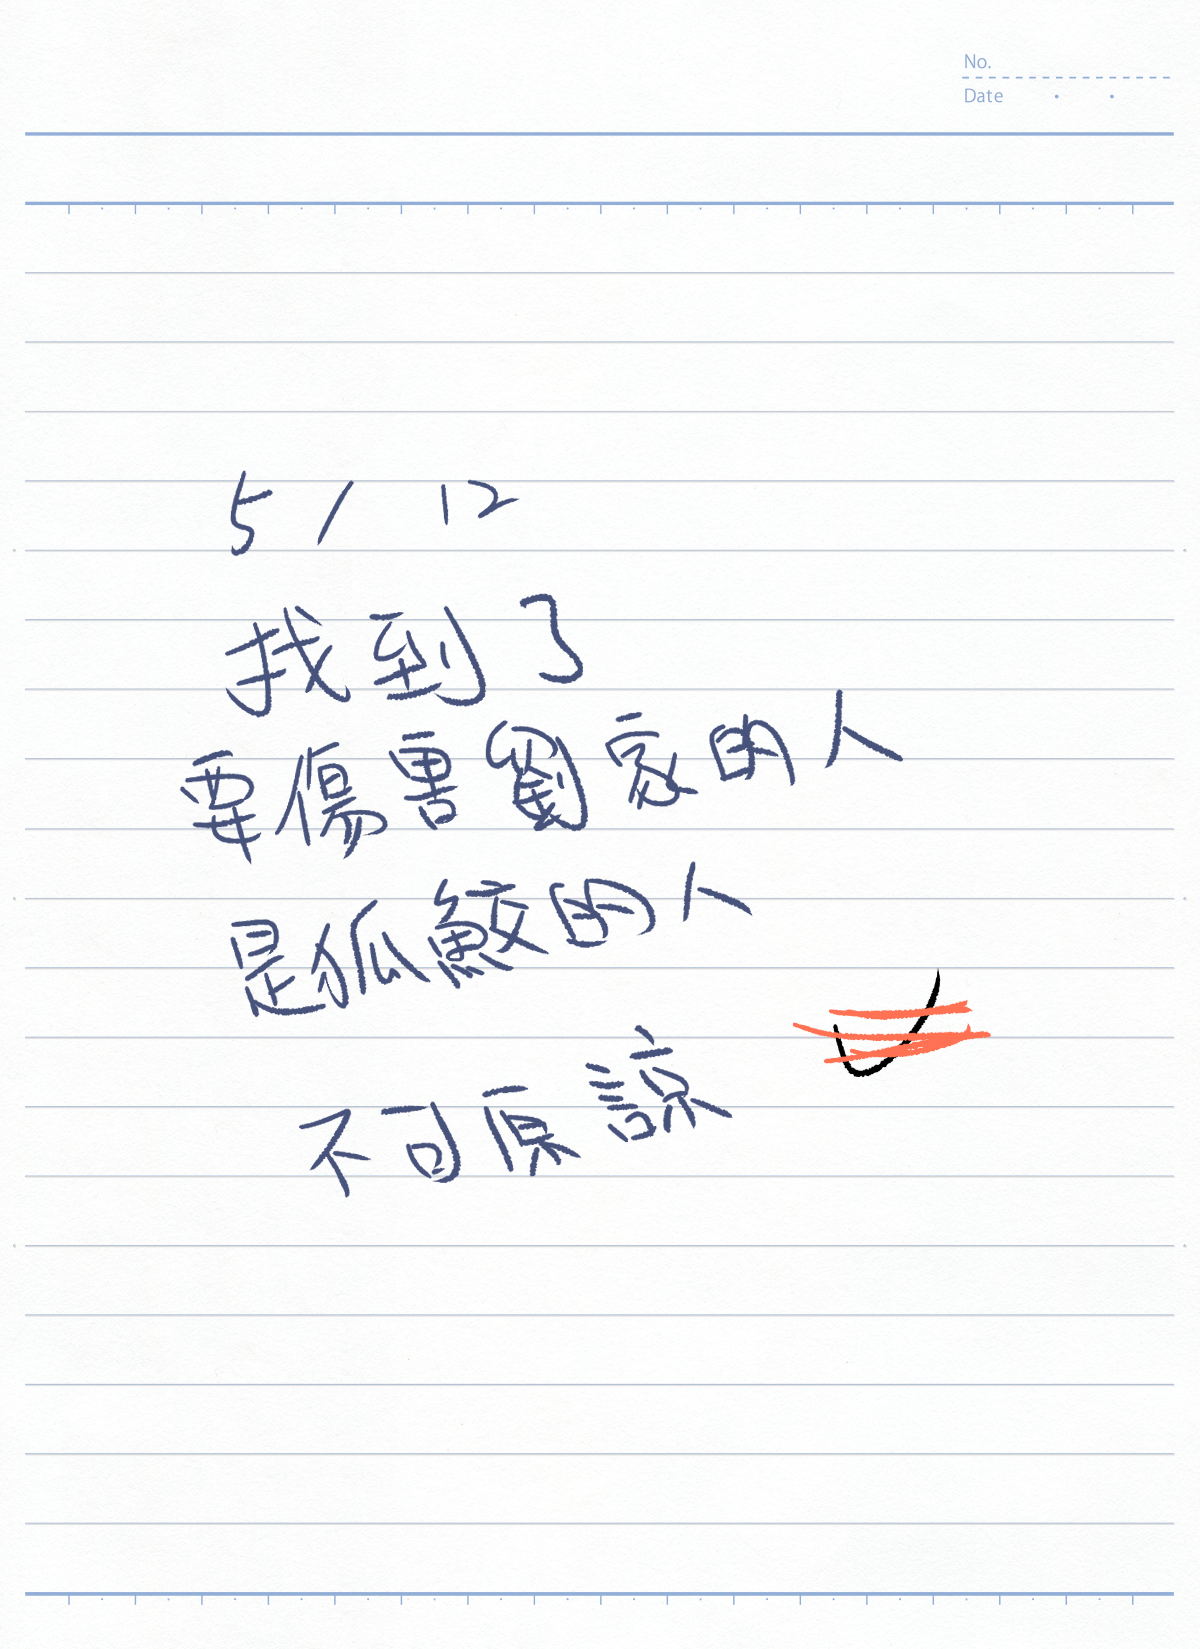 No.
Date
5/12
找到了
要傷害劉家的人
是狐鮫的人
不可原諒